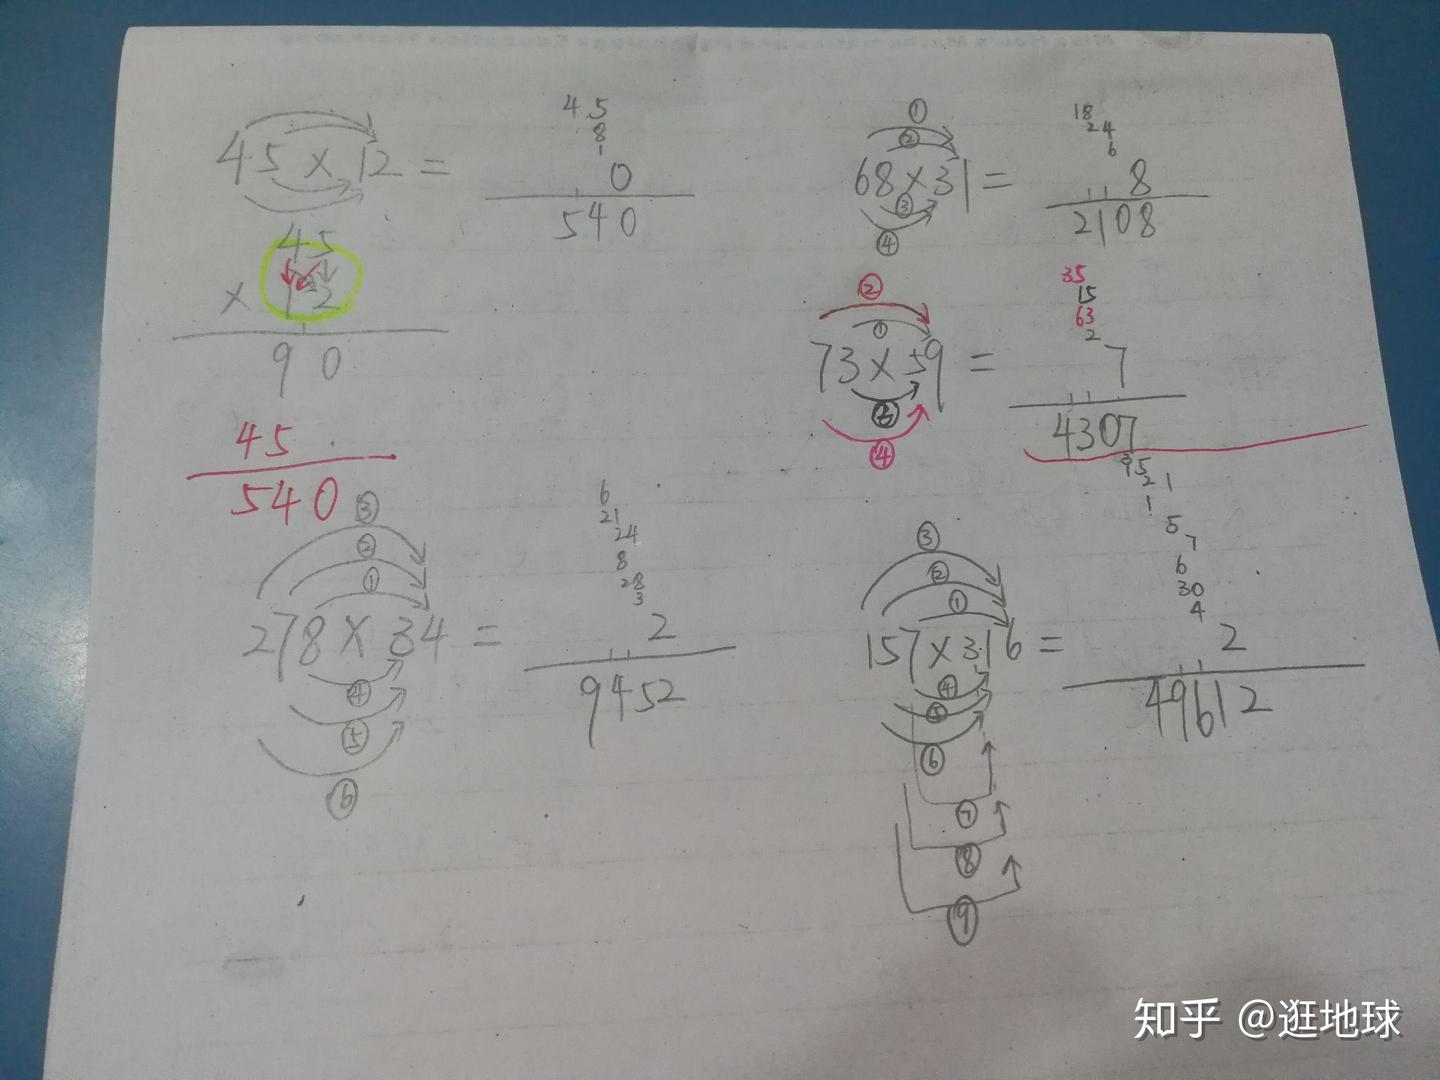 45 × 12 =
45
8
1
0
540
45
× 12
90
45
540
①
②
68 × 31 =
③
④
18
24
6
8
2108
②
①
73 × 59 =
③
④
35
15
63
2
7
4307
③
②
①
278 × 34 =
④
⑤
⑥
6
21
24
8
28
3
2
9452
③
②
①
157 × 316 =
④
⑤
⑥
⑦
⑧
⑨
1
1
5
7
6
30
4
2
49612
知乎 @逛地球